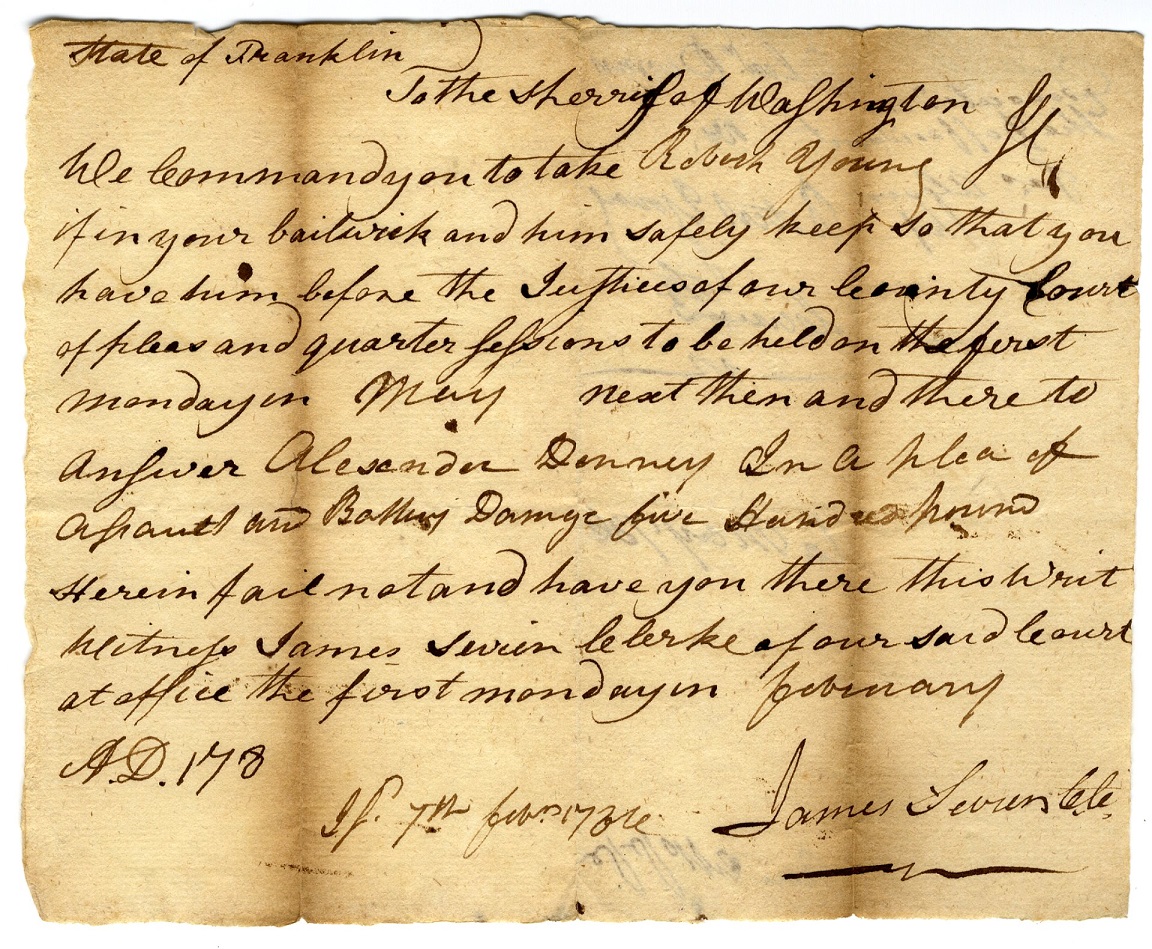 State of Franklin
To the Sherrif of Washington
We Command you to take Robert Young
if in your bailwick and him safely keep so that you
have him before the Justices of our County Court
of pleas and quarter Sessions to be held on the first
monday in May next then and there to
Answer Alexander Denney In a plea of
Assault and Battery Damge five Hundred pound
Herein fail not and have you there this Writ
Witness James Sevier Clerke of our said Court
at office the first monday in February
A.D. 178
Is. 7th febr. 1786
James Sevier Clk